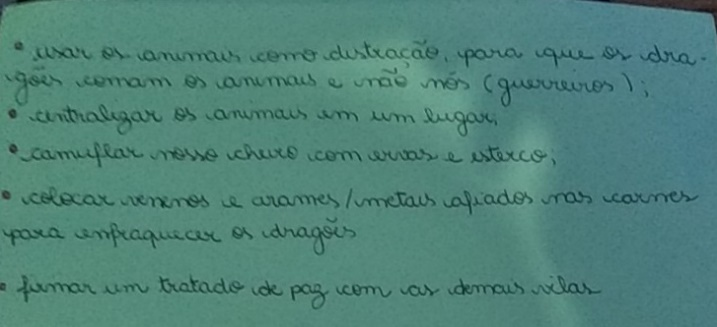 • usar os animais como distração, para que os dra-
gões comam os animais e não nós (guerreiros);
• centralizar os animais em um lugar;
• camuflar nosso cheiro com ervas e esterco;
• colocar venenos e arames/metais afiados nas carnes
para enfraquecer os dragões
• firmar um tratado de paz com as demais vilas